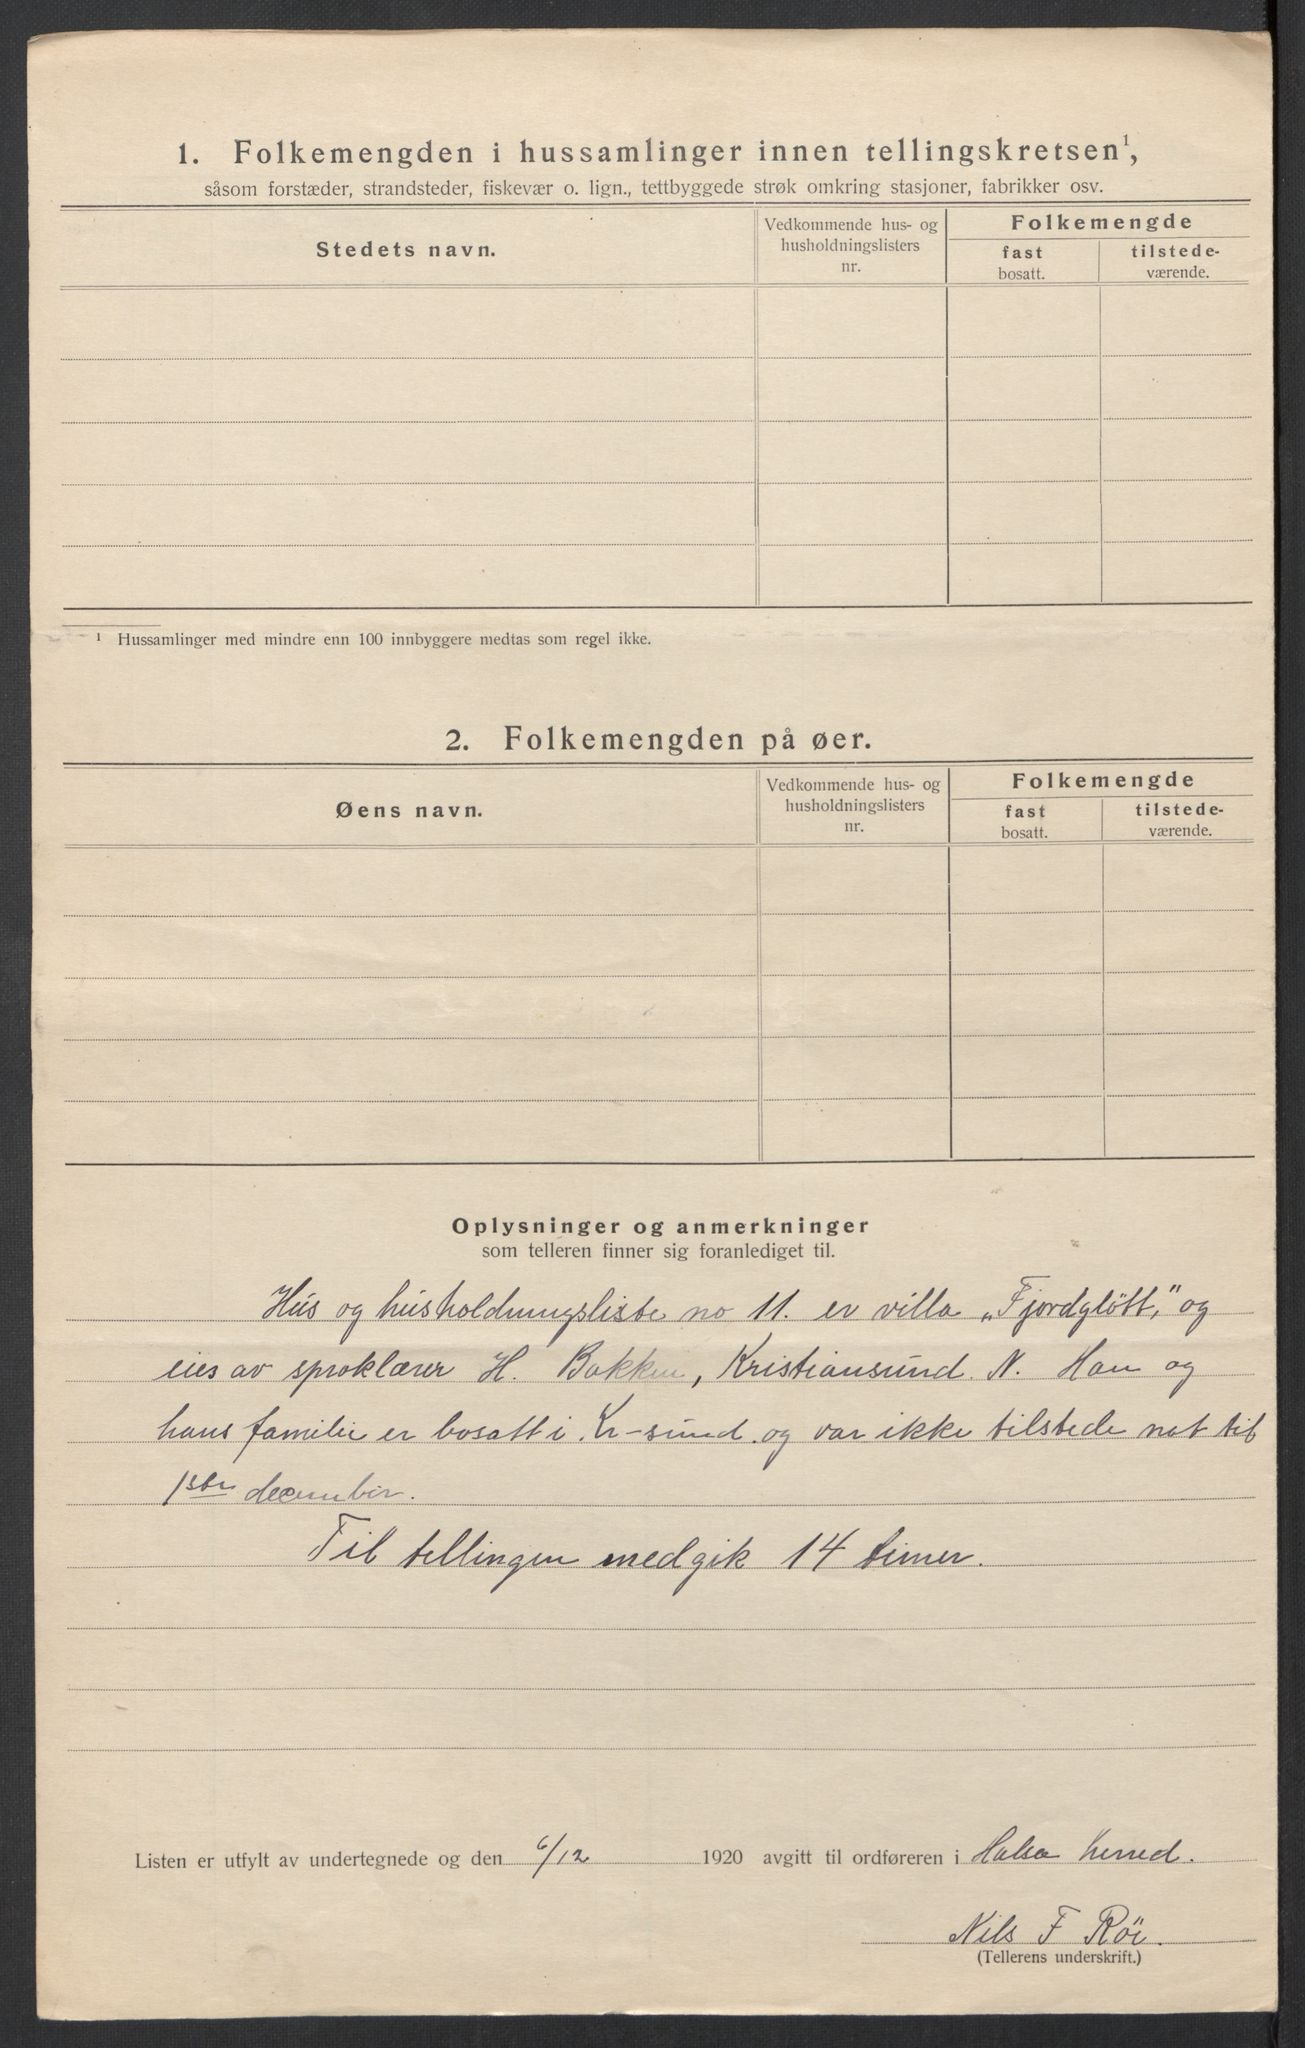 1. Folkemengden i hussamlinger innen tellingskretsen¹,
såsom forstæder, strandsteder, fiskevær o. lign., tettbyggede strøk omkring stasjoner, fabrikker osv.
Stedets navn.
Vedkommende hus- og
husholdningslisters
nr.
Folkemengde
fast
bosatt.
tilstede-
værende.
¹ Hussamlinger med mindre enn 100 innbyggere medtas som regel ikke.
2. Folkemengden på øer.
Øens navn.
Vedkommende hus- og
husholdningslisters
nr.
Folkemengde
fast
bosatt.
tilstede-
værende.
Oplysninger og anmerkninger
som telleren finner sig foranlediget til.
Hus og husholdningsliste no 11. er villa „Fjordglött," og
eies av sproklærer H. Bakken, Kristiansund. N. Han og
hans familie er bosatt i Kr-sund. og var ikke tilstede nat til
1ste december.
Til tellingen medgik 14 timer.
Listen er utfylt av undertegnede og den 6/12 1920 avgitt til ordføreren i Halsa herred.
Nils F Röi.
(Tellerens underskrift.)